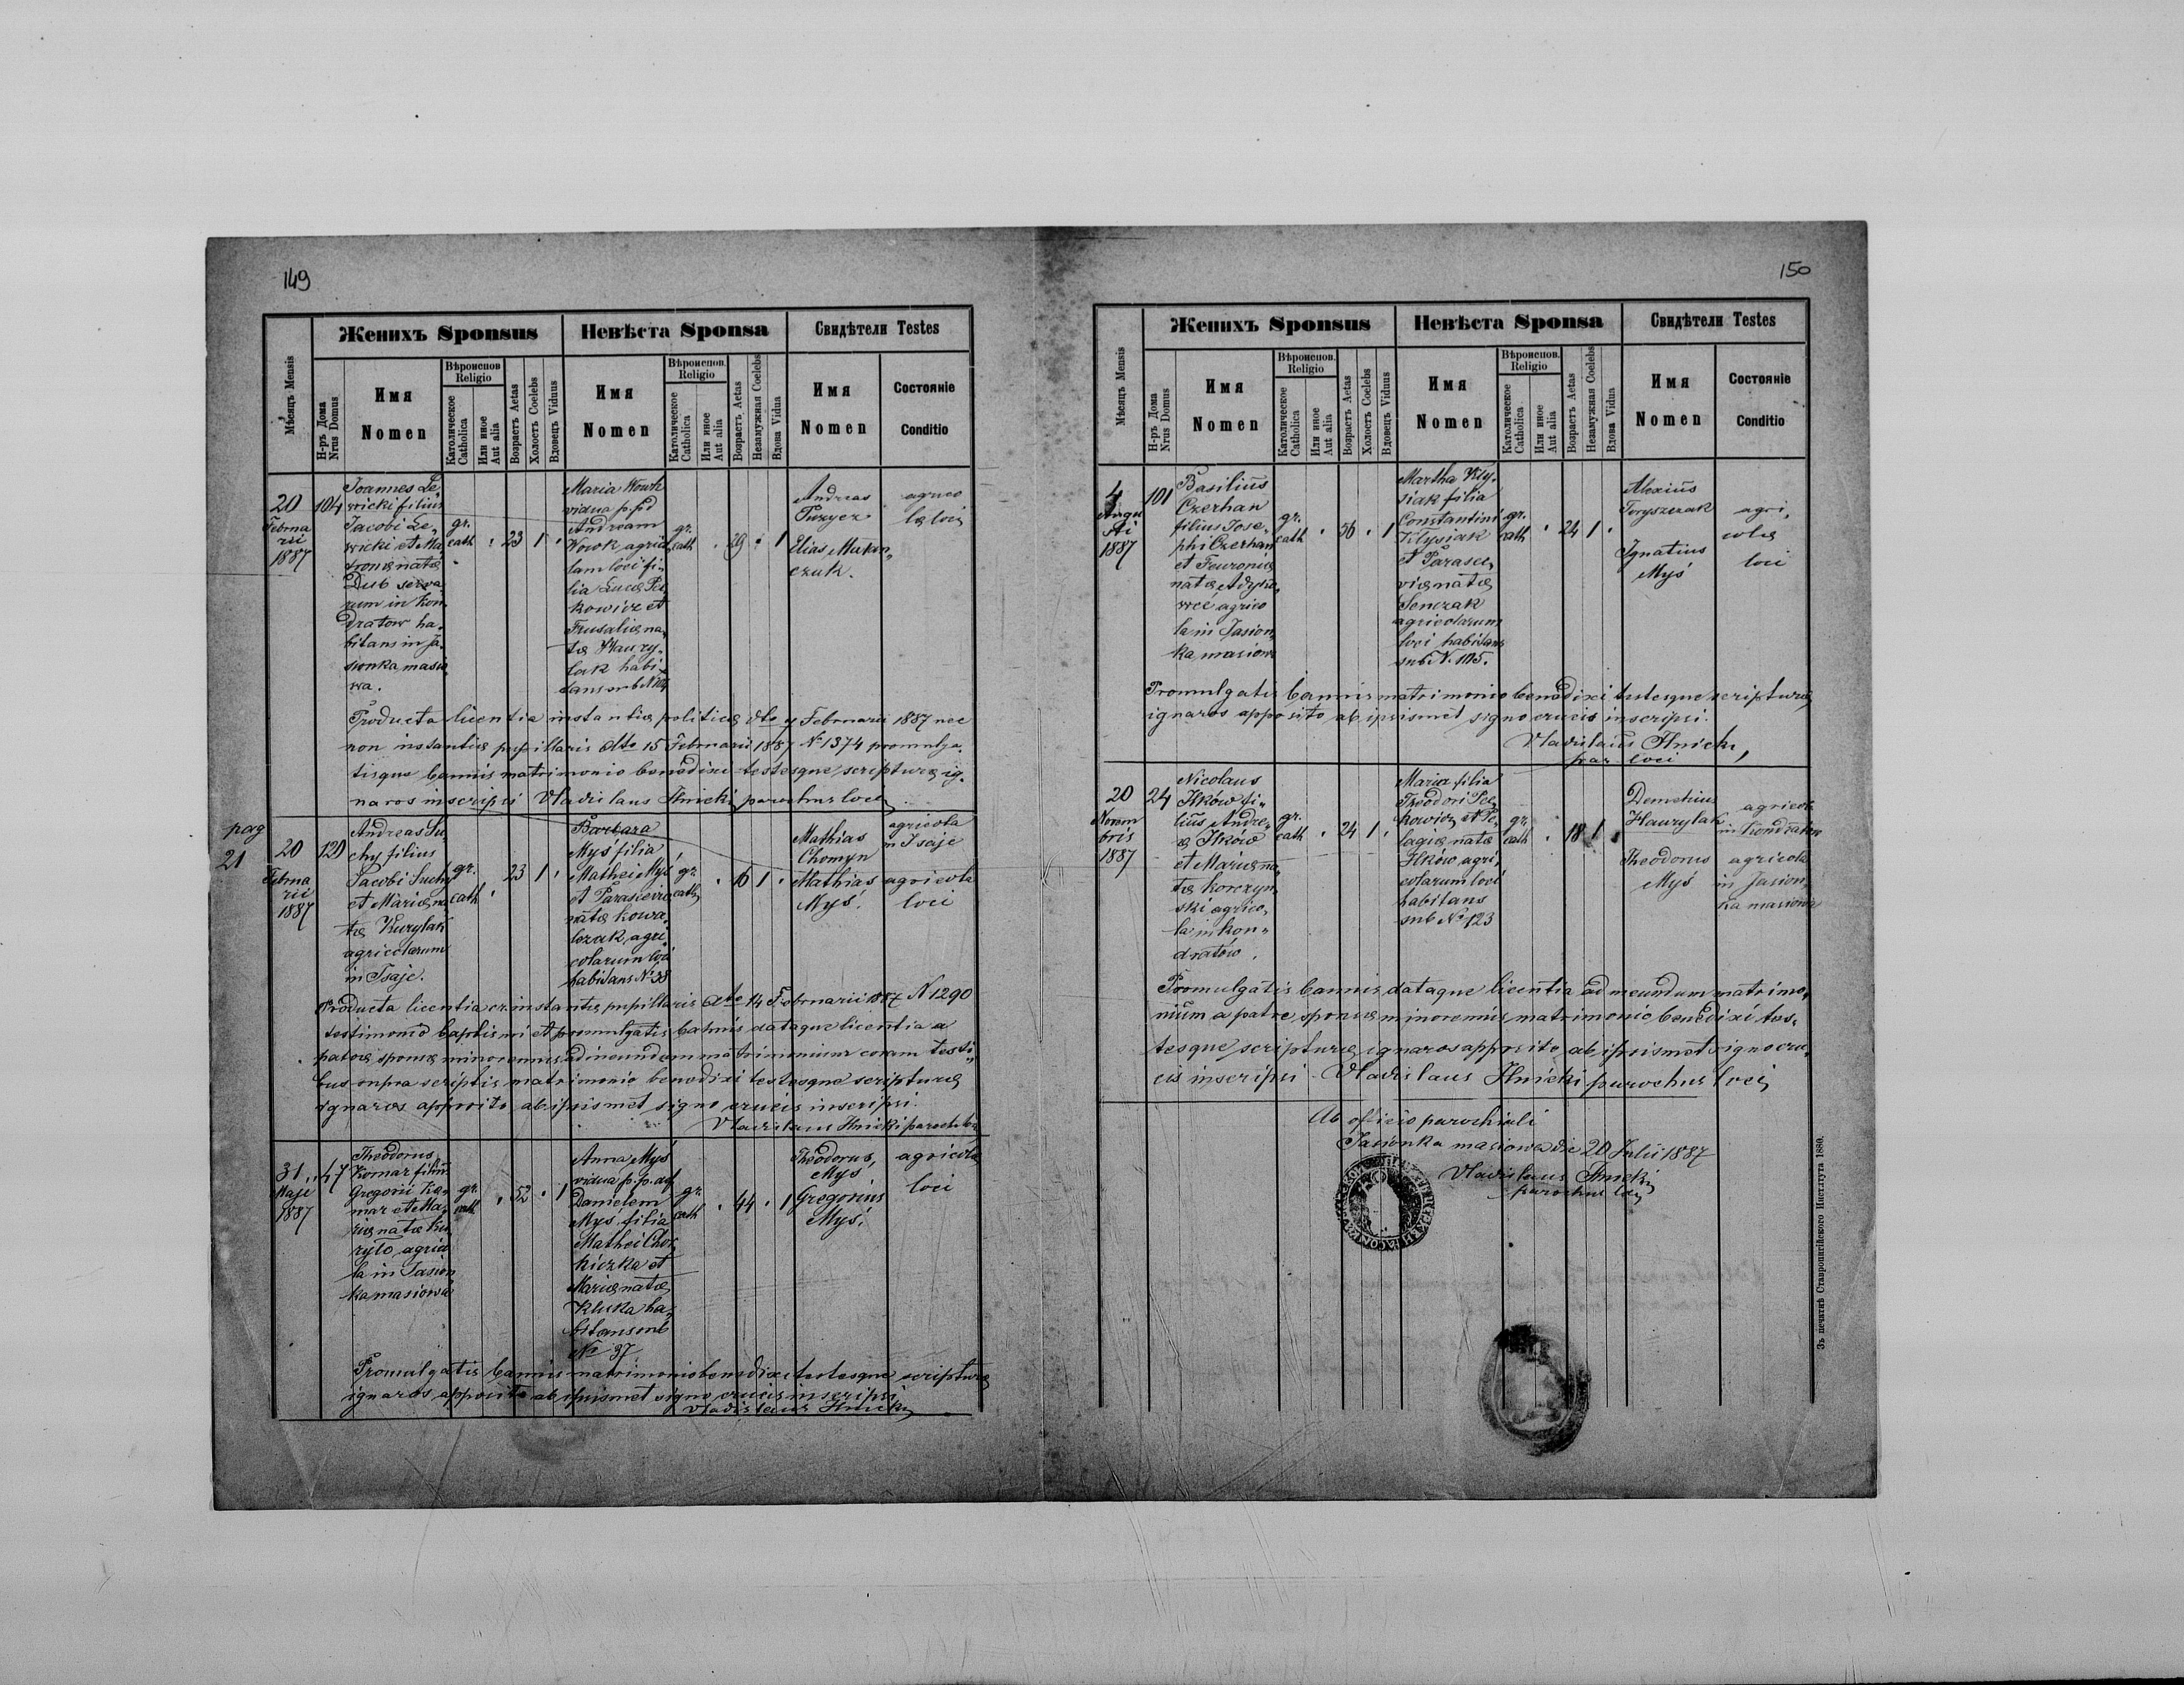 149
Женихъ Sponsus
Невѣста Sponsa
Свидѣтели Testes
Мѣсяцъ Mensis
Н-ръ Дома
Nrus Domus
Имя
Nomen
Вѣроиспов
Religio
Католическое
Catholica
Или иное
Aut alia
Возрастъ Aetas
Холостъ Coelebs
Вдовецъ Viduus
Имя
Nomen
Вѣроиспов.
Religio
Католическое
Catholica
Или иное
Aut alia
Возрастъ Aetas
Незамужная Coelebs
Вдова Vidua
Имя
Nomen
Состояніе
Conditio
20
Februa
rii
1887
104
Joannes Le„
wicki filius
Jacobi Le„
wicki et Ma
tronæ natæ
Dub serva
rum in Kon„
dratow ha„
bitans in Ja„
sionka masio
wa.
gr.
cath
23
1
Maria Wowk
vidua p. pd
Andream
Wowk agrico
lam loci fi„
lia Lucæ Pec
kowicz et
Frusaliæ na„
tæ Hawry„
lak habi„
tans sub N 104
gr.
cath
1
Andreas
Puzycz
Elias Mukan„
czuk.
agrico
læ loci
Producta licentia instantiæ politicæ dto 4 Februarii 1887 nec
non instantiæ pupillaris dto 15 Februarii 1887 № 1374 promulga„
tisque bannis matrimonio benedixi testesque scripturæ ig„
naros inscripsi Vladislaus Hnicki parochus loci
pag
21
20
Februa
rii
1887
120
Andreas Su„
chy filius
Jacobi Suchy
et Mariæ na
tæ Kurylak
agricolarum
in Isaje.
gr.
cath
23
1
Barbara
Myś filia
Mathei Myś
et Parasceviæ
natæ Kowa„
lczak, agri„
colarum loci
habitans № 38
gr.
cath
16
1
Mathias
Chomyn
Mathias
Myś.
agricola
in Isaje
agricola
loci
Producta licentia ex instantiæ pupillaris dto 14 Februarii 1887 N 1290
testimonio baptismi et promulgatis bannis dataque licentia a
patre sponsæ minorennis ad ineundum matrimonium coram testi„
bus supra scriptis matrimonio benedixi testesque scripturæ
ignaros apposito ab ipsismet signo crucis inscripsi.
Vladislaus Hnicki paroch loci
31
Maje
1887
47
Theodorus
Komar filius
Gregorii Ko„
mar et Ma„
riæ natæ Ku„
ryło agrico
la in Jasion
ka masiowa
gr.
cath
52
1
Anna Myś
vidua p. p. df
Danielem
Myś filia
Mathei Chor
kiczka et
Mariæ natæ
Kluka ha„
bitans sub
№ 37
gr.
cath
44
1
Theodorus
Myś
Gregorius
Myś.
agricolæ
loci
Promulgatis bannis matrimonio benedixi testesque scripturæ
ignaros apposito ab ipsismet signo crucis inscripsi
Vladislaus Hnicki
150
Женихъ Sponsus
Невѣста Sponsa
Свидѣтели Testes
Мѣсяцъ Mensis
Н-ръ Дома
Nrus Domus
Имя
Nomen
Вѣроиспов.
Religio
Католическое
Catholica
Или иное
Aut alia
Возрастъ Aetas
Холостъ Coelebs
Вдовецъ Viduus
Имя
Nomen
Вѣроиспов.
Religio
Католическое
Catholica
Или иное
Aut alia
Возрастъ Aetas
Незамужная Coelebs
Вдова Vidua
Имя
Nomen
Состояніе
Conditio
4
Augu
sti
1887
101
Basilius
Czerhan
filius Jose„
phi Czerhan
et Feuroniæ
natæ
agrico
la in Jasion„
ka masiowa
gr.
cath
56
1
Martha Kły„
siak filia
Constantini
Kłysiak
et Parasce„
viæ natæ
Senczak
agricolarum
loci habitans
sub № 105.
gr.
cath
24
1
Alexius
Toryszczak
Ignatius
Myś
agri„
colæ
loci
Promulgatis bannis matrimonio benedixi testesque scripturæ
ignaros apposito ab ipsismet signo crucis inscripsi.
Vladislaus Hnicki,
par loci
20
Novem
bris
1887
24
Nicolaus
Ilków fi„
lius Andre„
æ Ilków
et Mariæ na„
tæ Korczyn„
ski agrico„
la in Kon„
dratów.
gr.
cath
24
1
Maria filia
Theodori Pec„
kowicz et Pe„
lagiæ natæ
Ilków, agri„
colarum loci
habitans
sub № 123
gr.
cath
18
1
Demetrius
Hawrylak
Theodorus
Myś
agricola
in Kondratow
agricola
in Jasion„
ka masiowa
Promulgatis bannis, dataque licentia ad ineundum matrimo„
nium a patre sponsæ minorennis matrimonio benedixi tes„
tesque scripturæ ignaros apposito ab ipsismet signo cru„
cis inscripsi Vladislaus Hnicki parochus loci
Ab officio parochiali
Jasionka masiowa die 20 Julii 1887
Vladislaus Hnicki
parochus loci
Зъ печатнѣ Ставропигійского Института 1880.